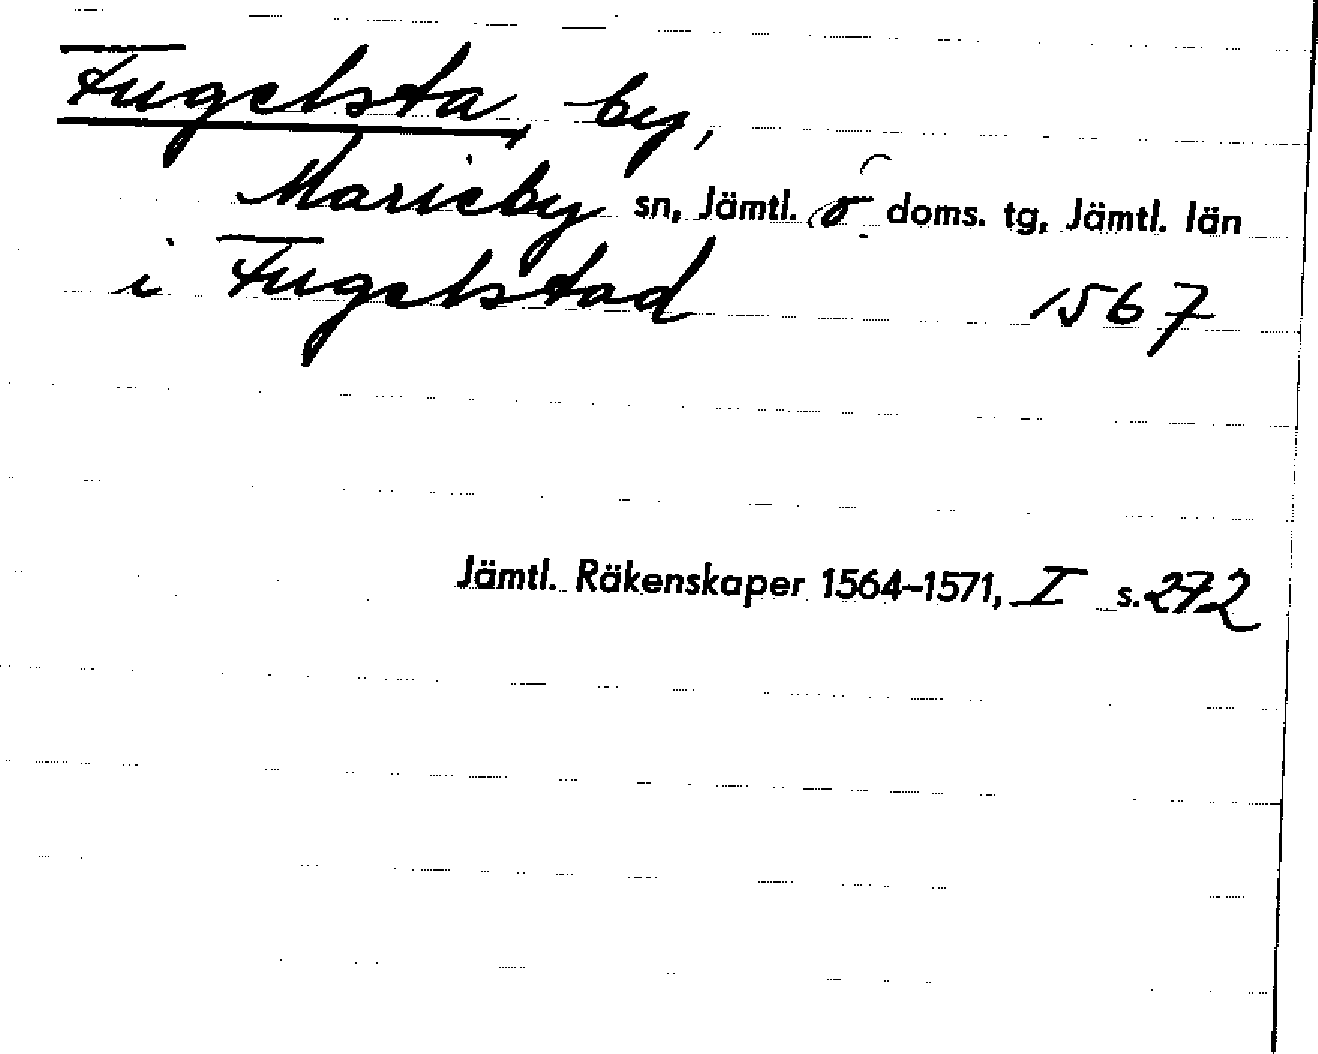 Fugelsta, by,
Marieby sn, Jämtl. ö doms. tg, Jämtl. län
i Fugelstad 1567
Jämtl. Räkenskaper 1564–1571, I s. 272